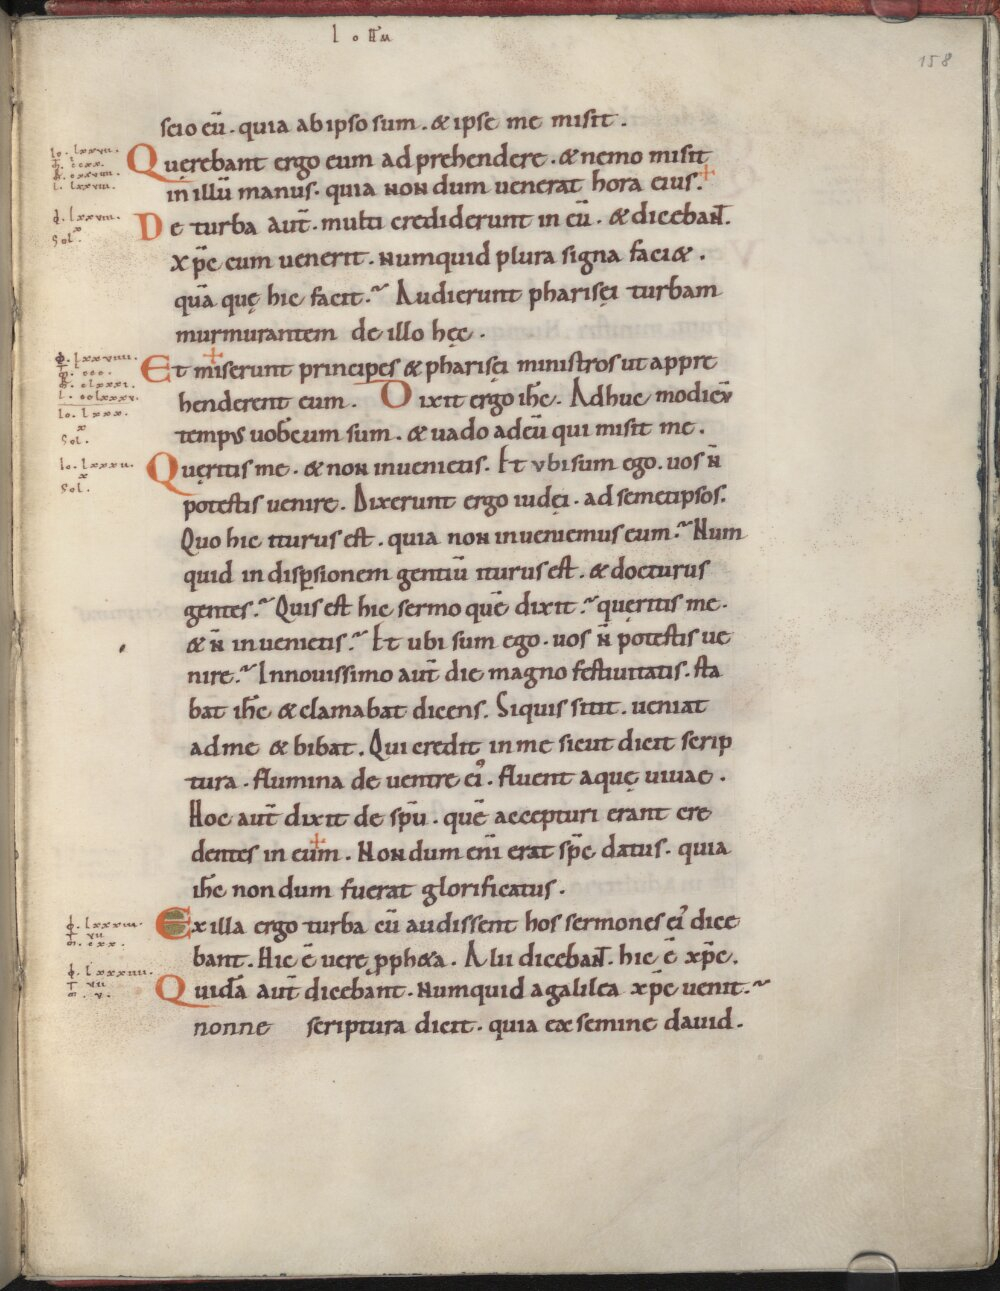 IOHAN
158
scio eū. quia ab ipso sum. & ipse me misit.
Quęrebant ergo eum adprehendere. & nemo misit
in illū manus. quia nondum uenerat hora eius.
De turba aut̄. multi crediderunt in eū. & dicebant.
xp̄c cum uenerit. numquid plura signa faci&.
quā quę hic facit. Audierunt pharisęi turbam
murmurantem de illo hęc.
Et miserunt principes & pharisęi ministros ut appre
henderent eum. Dixit ergo ih̄c. Adhuc modicū
tempus uobcum sum. & uado ad eū qui misit me.
Quęritis me. & non inuenietis. Et ubi sum ego. uos n̄
potestis uenire. Dixerunt ergo iudęi. ad semetipsos.
Quo hic iturus est. quia non inueniemus eum. Num
quid in disp̄sionem gentiū iturus est. & docturus
gentes. Quis est hic sermo quē dixit. quęritis me.
& n̄ inuenietis. Et ubi sum ego. uos n̄ potestis ue
nire. In nouissimo aut̄ die magno festiuitatis. sta
bat ih̄c & clamabat dicens. Siquis sitit. ueniat
ad me & bibat. Qui credit in me sicut dicit scrip
tura. flumina de uentre ei᾽. fluent aquę uiuae.
Hoc aut̄ dixit de sp̄u. quē accepturi erant cre
dentes in eum. Nondum eni̅ erat sp̄c datus. quia
ih̄c nondum fuerat glorificatus.
Ex illa ergo turba cū audissent hos sermones ei᾽ dice
bant. Hic ē uere pph&a. Alii dicebant. hic ē xp̄c.
Quidā aut̄ dicebant. Numquid a galilea xp̄c uenit.
nonne scriptura dicit. quia ex semine dauid.